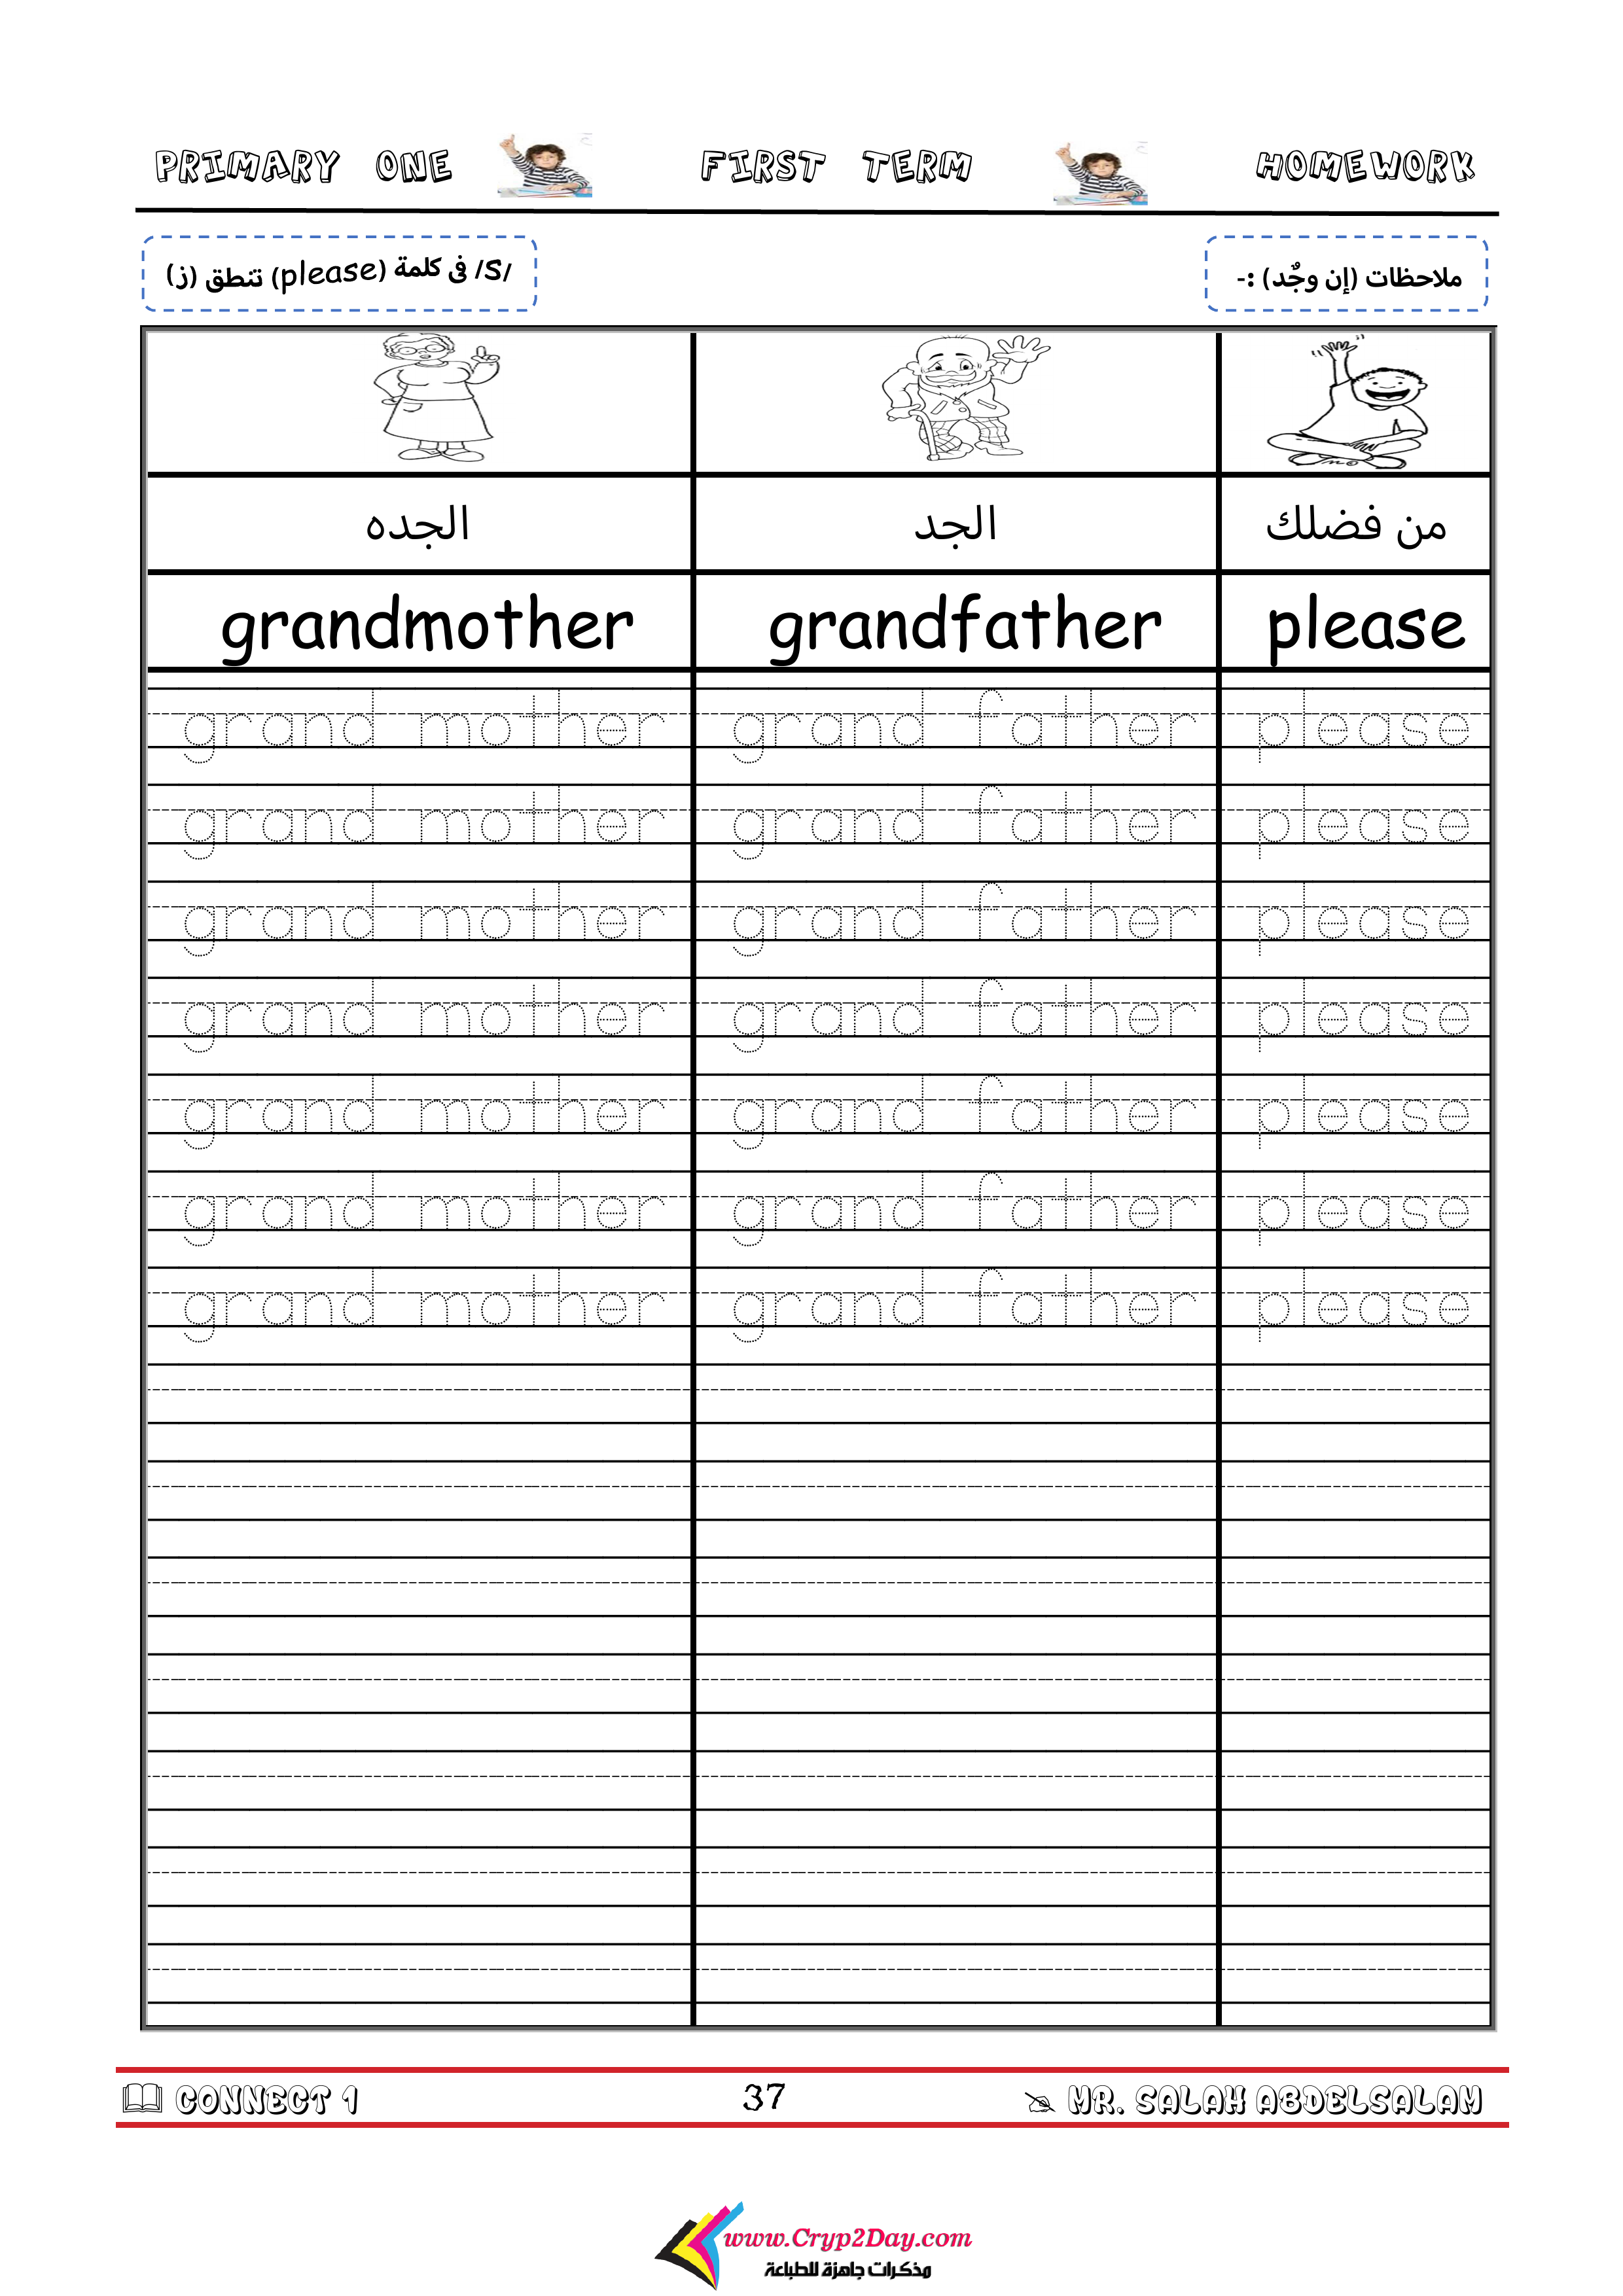 PRIMARY ONE FIRST TERM HOMEWORK
ملاحظات (إن وجٌد) :-
/s/ فى كلمة (please) تنطق (ز)
الجده الجد من فضلك
grandmother grandfather please
grand mother grand father please
grand mother grand father please
grand mother grand father please
grand mother grand father please
grand mother grand father please
grand mother grand father please
grand mother grand father please
CONNECT 1 37 MR. SALAH ABDELSALAM
www.Cryp2Day.com
مذكرات جاهزة للطباعة